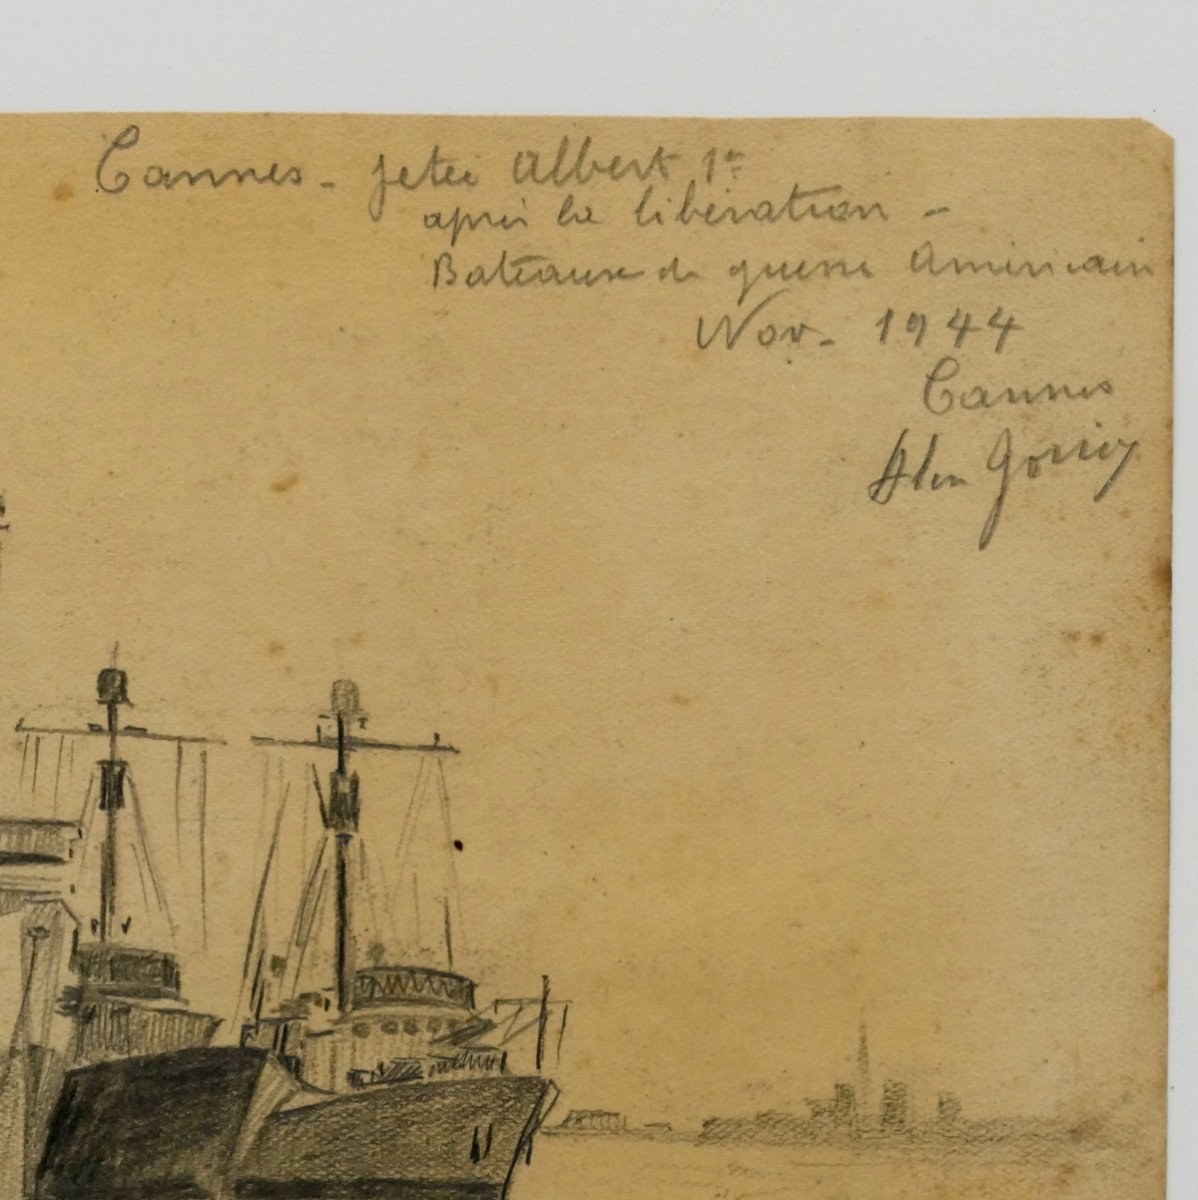 Cannes - jetée Albert 1er
après la libération -
Bateaux de guerre Américain
Nov. 1944
Cannes